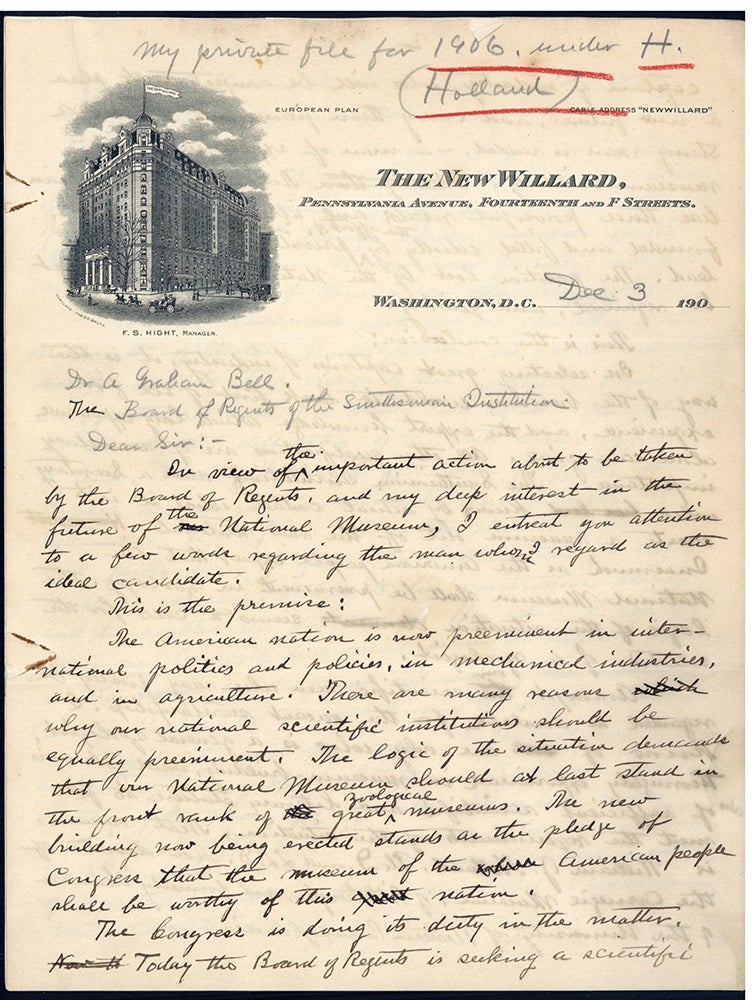 My private file for 1906. under H.
(Holland)
EUROPEAN PLAN
CABLE ADDRESS "NEWWILLARD"
THE NEW WILLARD,
PENNSYLVANIA AVENUE, FOURTEENTH AND F STREETS.
WASHINGTON, D.C. Dec. 3 190
F. S. HIGHT, MANAGER.
Dr A Graham Bell.
The Board of Regents of the Smithsonian Institution.
Dear Sir:-
In view of the important action about to be taken
by the Board of Regents, and my deep interest in the
future of the National Museum, I entreat you attention
to a few words regarding the man whom I regard as the
ideal candidate.
This is the premise:
The American nation is now preeminent in inter-
national politics and policies, in mechanical industries,
and in agriculture. There are many reasons which
why our national scientific institutions should be
equally preeminent. The logic of the situation demands
that our National Museum should at last stand in
the front rank of the great zoological museums. The new
building now being erected stands as the pledge of
Congress that the museum of the American people
shall be worthy of this great nation.
The Congress is doing its duty in the matter.
Today the Board of Regents is seeking a scientific